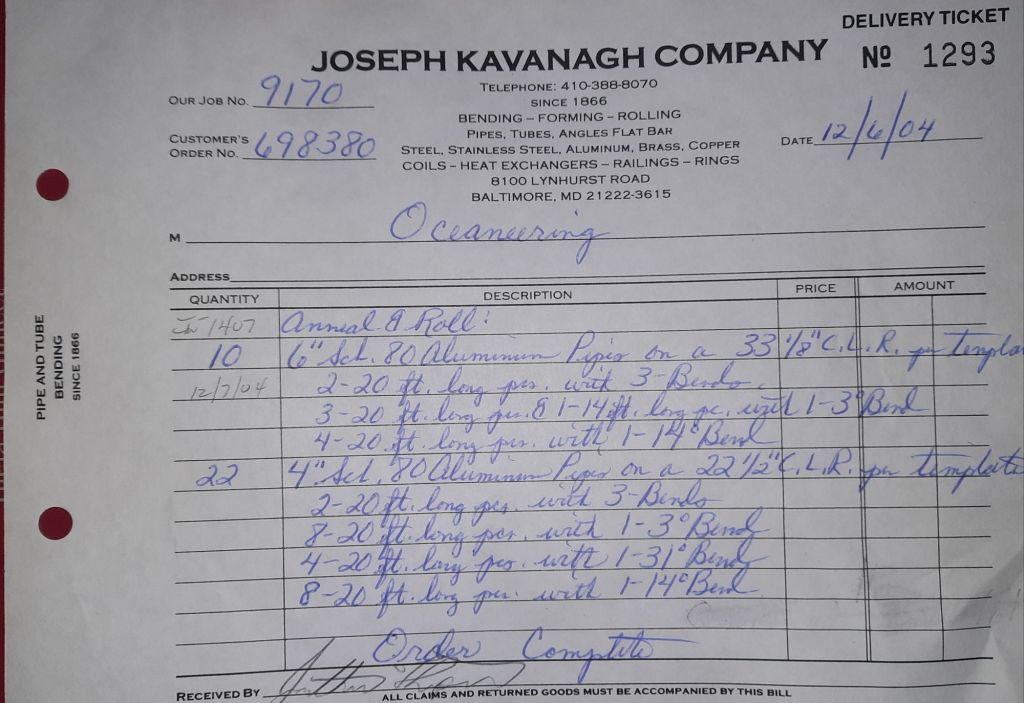 DELIVERY TICKET
JOSEPH KAVANAGH COMPANY
Nº 1293
TELEPHONE: 410-388-8070
SINCE 1866
BENDING – FORMING – ROLLING
PIPES, TUBES, ANGLES FLAT BAR
STEEL, STAINLESS STEEL, ALUMINUM, BRASS, COPPER
COILS – HEAT EXCHANGERS – RAILINGS – RINGS
8100 LYNHURST ROAD
BALTIMORE, MD 21222-3615
OUR JOB NO. 9170
CUSTOMER'S ORDER NO. 698380
DATE 12/6/04
M Oceaneering
ADDRESS
QUANTITY DESCRIPTION PRICE AMOUNT
1407 Anneal & Roll:
10 6" Sch. 80 Aluminum Pipes on a 33 1/8" C.L.R. per
12/7/04 2-20 ft. long pcs. with 3-Bends.
3-20 ft. long pcs. & 1-14 ft. long pc. with 1-3° Bend
4-20 ft. long pcs. with 1-14° Bend
22 4" Sch. 80 Aluminum Pipes on a 22 1/2" C.L.R. per template
2-20 ft. long pcs. with 3-Bends
8-20 ft. long pcs. with 1-3° Bend
4-20 ft. long pcs. with 1-31° Bend
8-20 ft. long pcs. with 1-14° Bend
Order Complete
RECEIVED BY
ALL CLAIMS AND RETURNED GOODS MUST BE ACCOMPANIED BY THIS BILL
PIPE AND TUBE
BENDING
SINCE 1866